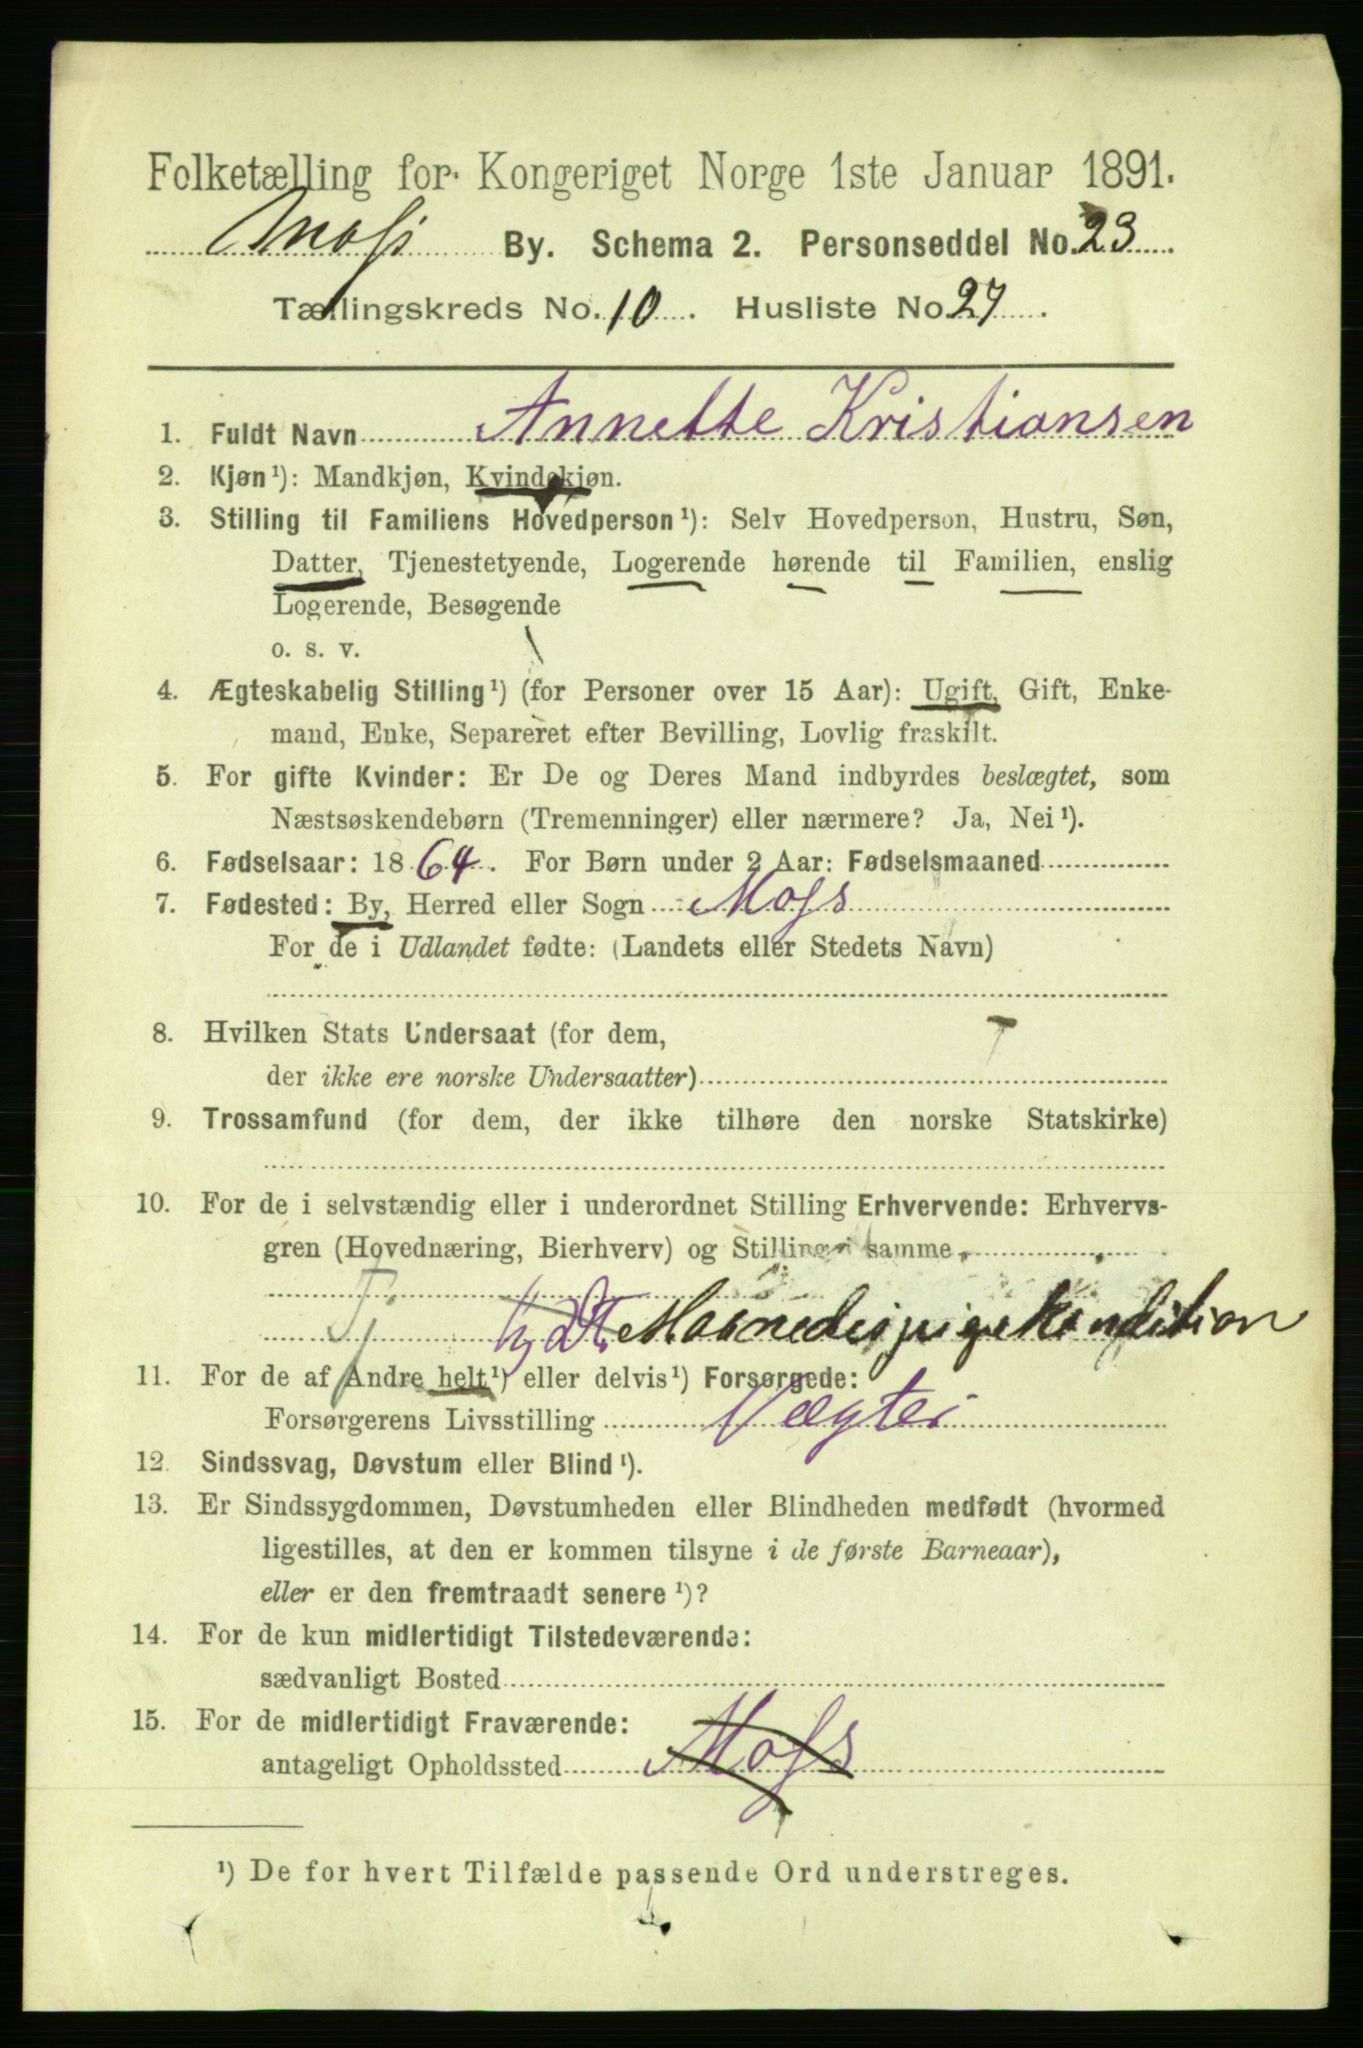 Folketælling for Kongeriget Norge 1ste Januar 1891.
Moss By. Schema 2. Personseddel No. 23
Tællingskreds No. 10. Husliste No 27.
1. Fuldt Navn Annette Kristiansen
2. Kjøn¹): Mandkjøn, Kvindekjøn.
3. Stilling til Familiens Hovedperson¹): Selv Hovedperson, Hustru, Søn,
Datter, Tjenestetyende, Logerende hørende til Familien, enslig
Logerende, Besøgende
o. s. v.
4. Ægteskabelig Stilling¹) (for Personer over 15 Aar): Ugift, Gift, Enke-
mand, Enke, Separeret efter Bevilling, Lovlig fraskilt.
5. For gifte Kvinder: Er De og Deres Mand indbyrdes beslægtet, som
Næstsøskendebørn (Tremenninger) eller nærmere? Ja, Nei¹).
6. Fødselsaar: 1864. For Børn under 2 Aar: Fødselsmaaned
7. Fødested: By, Herred eller Sogn Moss
For de i Udlandet fødte: (Landets eller Stedets Navn)
8. Hvilken Stats Undersaat (for dem,
der ikke ere norske Undersaatter)
9. Trossamfund (for dem, der ikke tilhøre den norske Statskirke)
10. For de i selvstændig eller i underordnet Stilling Erhvervende: Erhvervs-
gren (Hovednæring, Bierhverv) og Stilling i samme
Tj Maanedespigekondition
11. For de af Andre helt¹) eller delvis¹) Forsørgede:
Forsørgerens Livsstilling Vægter
12. Sindssvag, Døvstum eller Blind¹).
13. Er Sindssygdommen, Døvstumheden eller Blindheden medfødt (hvormed
ligestilles, at den er kommen tilsyne i de første Barneaar),
eller er den fremtraadt senere¹)?
14. For de kun midlertidigt Tilstedeværende:
sædvanligt Bosted
15. For de midlertidigt Fraværende:
antageligt Opholdssted Moss
¹) De for hvert Tilfælde passende Ord understreges.